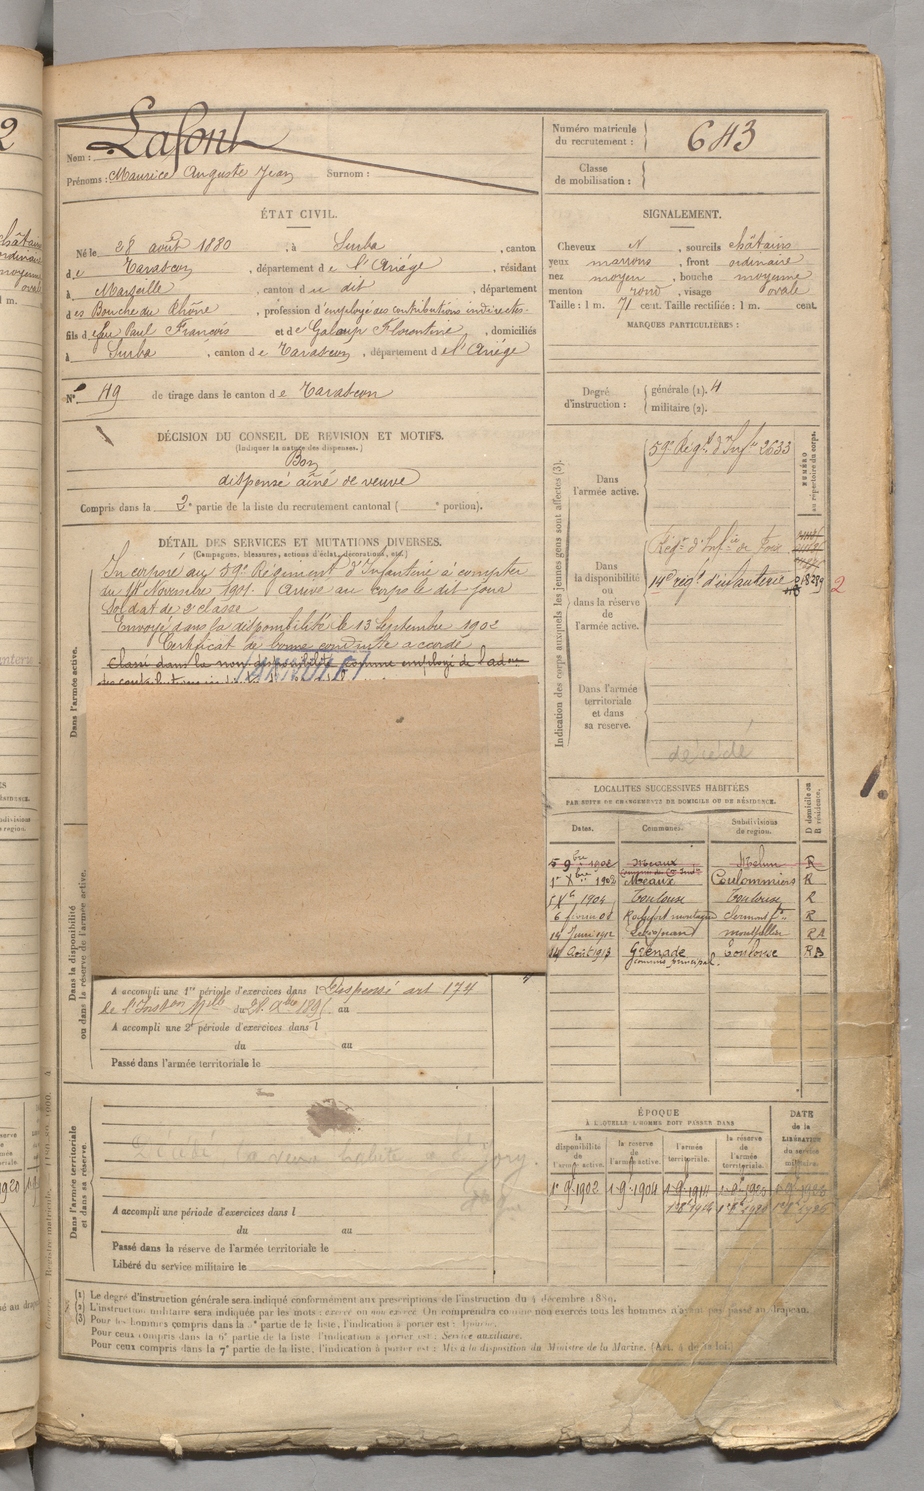 Nom : Lafont
Prénoms : Maurice Auguste Jean Surnom :
ÉTAT CIVIL.
Né le 28 août 1880, à Surba, canton
de Tarascon, département de l'Ariége, résidant
à Marseille, canton du dit, département
des Bouche du Rhône, profession d'employé des contributions indirectes.
fils de feu Paul François et de Galaup Florentine, domiciliés
à Surba, canton de Tarascon, département de l'Ariége
N° 49 de tirage dans le canton de Tarascon
DÉCISION DU CONSEIL DE RÉVISION ET MOTIFS.
(Indiquer la nature des dispenses.)
Bon
dispensé aîné de veuve
Compris dans la 2e partie de la liste du recrutement cantonal ( e portion).
DÉTAIL DES SERVICES ET MUTATIONS DIVERSES.
(Campagnes, blessures, actions d'éclat, décorations, etc.)
Dans l'armée active.
Incorporé au 59e Régiment d'Infanterie à compter
du 14 Novembre 1901. Arrivé au corps le dit jour
Soldat de 2e classe
Envoyé dans la disponibilité le 13 Septembre 1902
Certificat de bonne conduite accordé
Classé dans la non disponibilité comme employé de l'adon
Dans la disponibilité
ou dans la réserve de l'armée active.
A accompli une 1re période d'exercices dans l Dispensé art 174
de l'Inston Mlle du 28 Xbre 1895 au
A accompli une 2e période d'exercices dans l
du au
Passé dans l'armée territoriale le
Dans l'armée territoriale
et dans sa réserve.
A accompli une période d'exercices dans l
du au
Passé dans la réserve de l'armée territoriale le
Libéré du service militaire le
Numéro matricule
du recrutement : 643
Classe
de mobilisation :
SIGNALEMENT.
Cheveux N, sourcils châtains
yeux marrons, front ordinaire
nez moyen, bouche moyenne
menton rond, visage ovale
Taille : 1 m. 71 cent. Taille rectifiée : 1 m. cent.
MARQUES PARTICULIÈRES :
Degré
d'instruction :
générale (1). 4
militaire (2).
Indication des corps auxquels les jeunes gens sont affectés (3).
NUMÉRO
au répertoire du corps.
Dans
l'armée active.
59e Régt d'Infie 2633
Dans
la disponibilité
ou dans la réserve
de
l'armée active.
Régt d'Infie de Foix
14e régt d'infanterie
2
Dans l'armée
territoriale
et dans
sa réserve.
décédé
LOCALITÉS SUCCESSIVES HABITÉES
PAR SUITE DE CHANGEMENTS DE DOMICILE OU DE RÉSIDENCE.
D domicile ou
R résidence.
Dates. Communes. Subdivisions
de région.
5 9bre 1902 Meaux Melun R
1er Xbre 1902 Meaux Coulommiers R
1 Xe 1904 Toulouse Toulouse R
Rochefort montagne R
14 Juin 1912 Lézignan montpellier RA
14 Août 1913 Grenade Toulouse RA
commis principal.
1.
ÉPOQUE
À LAQUELLE L'HOMME DOIT PASSER DANS
DATE
de la
LIBÉRATION
du service
militaire.
la
disponibilité
de
l'armée active.
la réserve
de
l'armée active.
l'armée
territoriale.
la réserve
de
l'armée
territoriale.
1er 9bre 1902 1er 9bre 1904 1er 9bre 1914
(1) Le degré d'instruction générale sera indiqué conformément aux prescriptions de l'instruction du 4 décembre 1889.
(2) L'instruction militaire sera indiquée par les mots : exercé ou non exercé. On comprendra comme non exercés tous les hommes n'ayant pas passé au drapeau.
(3) Pour les hommes compris dans la partie de la liste, l'indication à porter est : Ajourné.
Pour ceux compris dans la 6e partie de la liste l'indication à porter est : Service auxiliaire.
Pour ceux compris dans la 7e partie de la liste, l'indication à porter est : Mis à la disposition du Ministre de la Marine. (Art. 4 de la loi.)